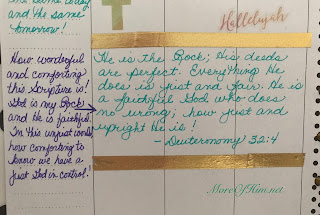 the same today
and the same
tomorrow!
Hallelujah
How wonderful
and comforting
this Scripture is!
God is my Rock
and He is faithful.
In this unjust world
how comforting to
know we have a
just God in control!
He is the Rock; His deeds
are perfect. Everything He
does is just and fair. He is
a faithful God who does
no wrong; how just and
upright He is!
- Deuteronomy 32:4
MoreOfHim.net